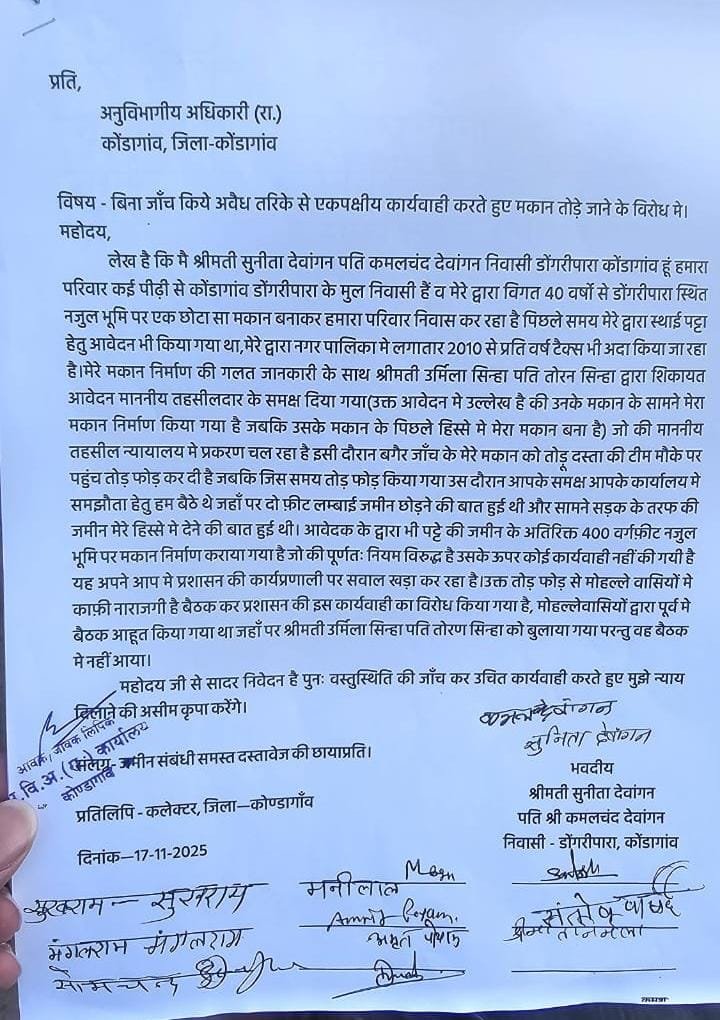 प्रति,
अनुविभागीय अधिकारी (रा.)
कोंडागांव, जिला-कोंडागांव
विषय - बिना जाँच किये अवैध तरिके से एकपक्षीय कार्यवाही करते हुए मकान तोड़े जाने के विरोध मे।
महोदय,
लेख है कि मै श्रीमती सुनीता देवांगन पति कमलचंद देवांगन निवासी डोंगरीपारा कोंडागांव हूं हमारा
परिवार कई पीढ़ी से कोंडागांव डोंगरीपारा के मुल निवासी हैं व मेरे द्वारा विगत 40 वर्षो से डोंगरीपारा स्थित
नजुल भूमि पर एक छोटा सा मकान बनाकर हमारा परिवार निवास कर रहा है पिछले समय मेरे द्वारा स्थाई पट्टा
हेतु आवेदन भी किया गया था,मेरे द्वारा नगर पालिका मे लगातार 2010 से प्रति वर्ष टैक्स भी अदा किया जा रहा
है।मेरे मकान निर्माण की गलत जानकारी के साथ श्रीमती उर्मिला सिन्हा पति तोरन सिन्हा द्वारा शिकायत
आवेदन माननीय तहसीलदार के समक्ष दिया गया(उक्त आवेदन मे उल्लेख है की उनके मकान के सामने मेरा
मकान निर्माण किया गया है जबकि उसके मकान के पिछले हिस्से मे मेरा मकान बना है) जो की माननीय
तहसील न्यायालय मे प्रकरण चल रहा है इसी दौरान बगैर जाँच के मेरे मकान को तोड़ू दस्ता की टीम मौके पर
पहुंच तोड़ फोड़ कर दी है जबकि जिस समय तोड़ फोड़ किया गया उस दौरान आपके समक्ष आपके कार्यालय मे
समझौता हेतु हम बैठे थे जहाँ पर दो फ़ीट लम्बाई जमीन छोड़ने की बात हुई थी और सामने सड़क के तरफ की
जमीन मेरे हिस्से मे देने की बात हुई थी। आवेदक के द्वारा भी पट्टे की जमीन के अतिरिक्त 400 वर्गफ़ीट नजुल
भूमि पर मकान निर्माण कराया गया है जो की पूर्णतः नियम विरुद्ध है उसके ऊपर कोई कार्यवाही नहीं की गयी है
यह अपने आप मे प्रशासन की कार्यप्रणाली पर सवाल खड़ा कर रहा है।उक्त तोड़ फोड़ से मोहल्ले वासियों मे
काफ़ी नाराजगी है बैठक कर प्रशासन की इस कार्यवाही का विरोध किया गया है, मोहल्लेवासियों द्वारा पूर्व मे
बैठक आहूत किया गया था जहाँ पर श्रीमती उर्मिला सिन्हा पति तोरण सिन्हा को बुलाया गया परन्तु वह बैठक
मे नहीं आया।
महोदय जी से सादर निवेदन है पुनः वस्तुस्थिति की जाँच कर उचित कार्यवाही करते हुए मुझे न्याय
दिलाने की असीम कृपा करेंगे।
आवक, जावक लिपिक
कार्यालय
कोण्डागांव
संलग्न- जमीन संबंधी समस्त दस्तावेज की छायाप्रति।
सुनिता देवांगन
भवदीय
श्रीमती सुनीता देवांगन
पति श्री कमलचंद देवांगन
निवासी - डोंगरीपारा, कोंडागांव
प्रतिलिपि - कलेक्टर, जिला–कोण्डागाँव
दिनांक–17-11-2025
सुखराम
मनीलाल
संतोष
मंगलराम मंगलराम
अमृत
सोमचन्द